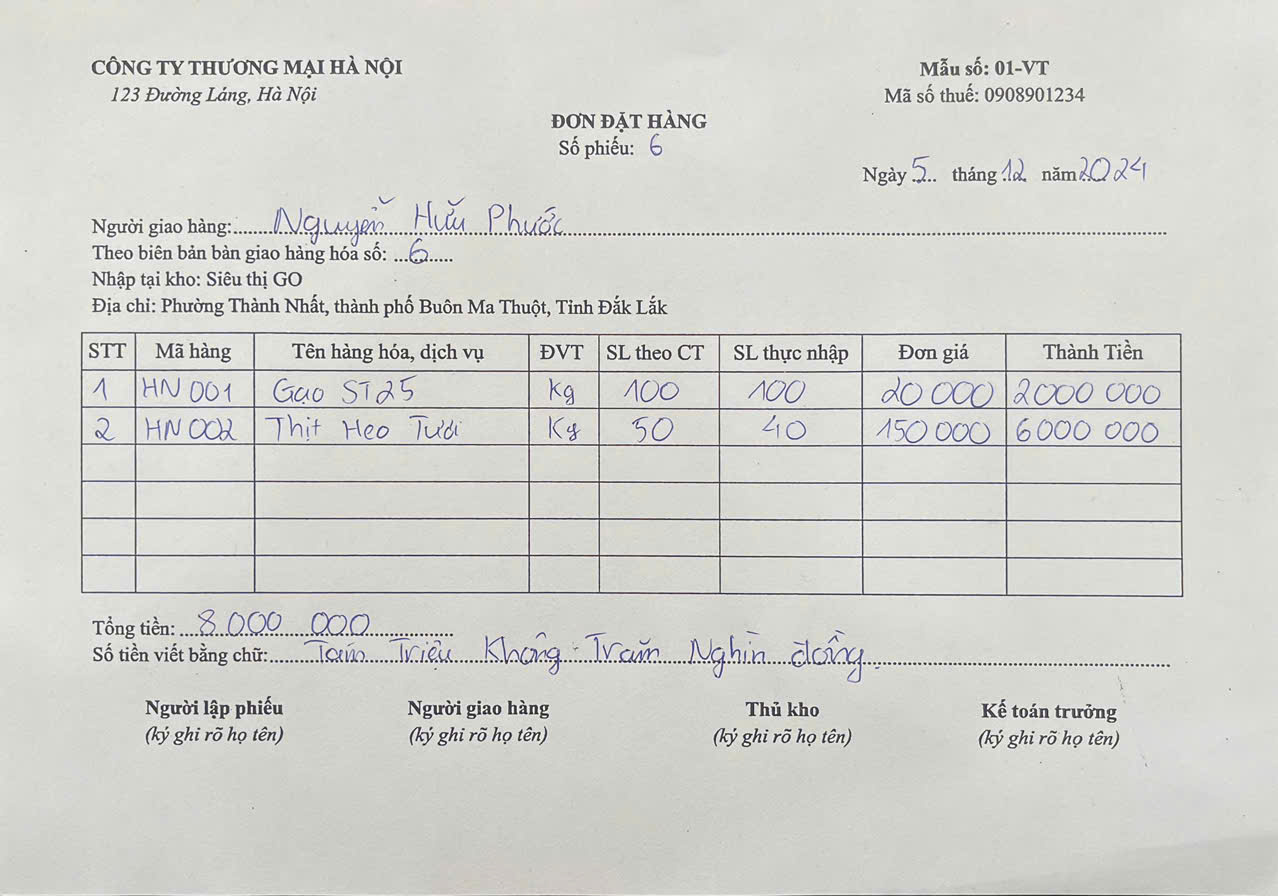 CÔNG TY THƯƠNG MẠI HÀ NỘI
123 Đường Láng, Hà Nội
Mẫu số: 01-VT
Mã số thuế: 0908901234
ĐƠN ĐẶT HÀNG
Số phiếu: 6
Ngày 5 tháng 12 năm 2024
Người giao hàng: Nguyễn Hữu Phước
Theo biên bản bàn giao hàng hóa số: 6
Nhập tại kho: Siêu thị GO
Địa chỉ: Phường Thành Nhất, thành phố Buôn Ma Thuột, Tỉnh Đắk Lắk
STT Mã hàng Tên hàng hóa, dịch vụ ĐVT SL theo CT SL thực nhập Đơn giá Thành Tiền
1 HN 001 Gạo ST25 Kg 100 100 20 000 2000 000
2 HN 002 Thịt Heo Tươi Kg 50 40 150 000 6000 000
Tổng tiền: 8.000 000
Số tiền viết bằng chữ: Tám Triệu Không Trăm Nghìn đồng.
Người lập phiếu Người giao hàng Thủ kho Kế toán trưởng
(ký ghi rõ họ tên) (ký ghi rõ họ tên) (ký ghi rõ họ tên) (ký ghi rõ họ tên)